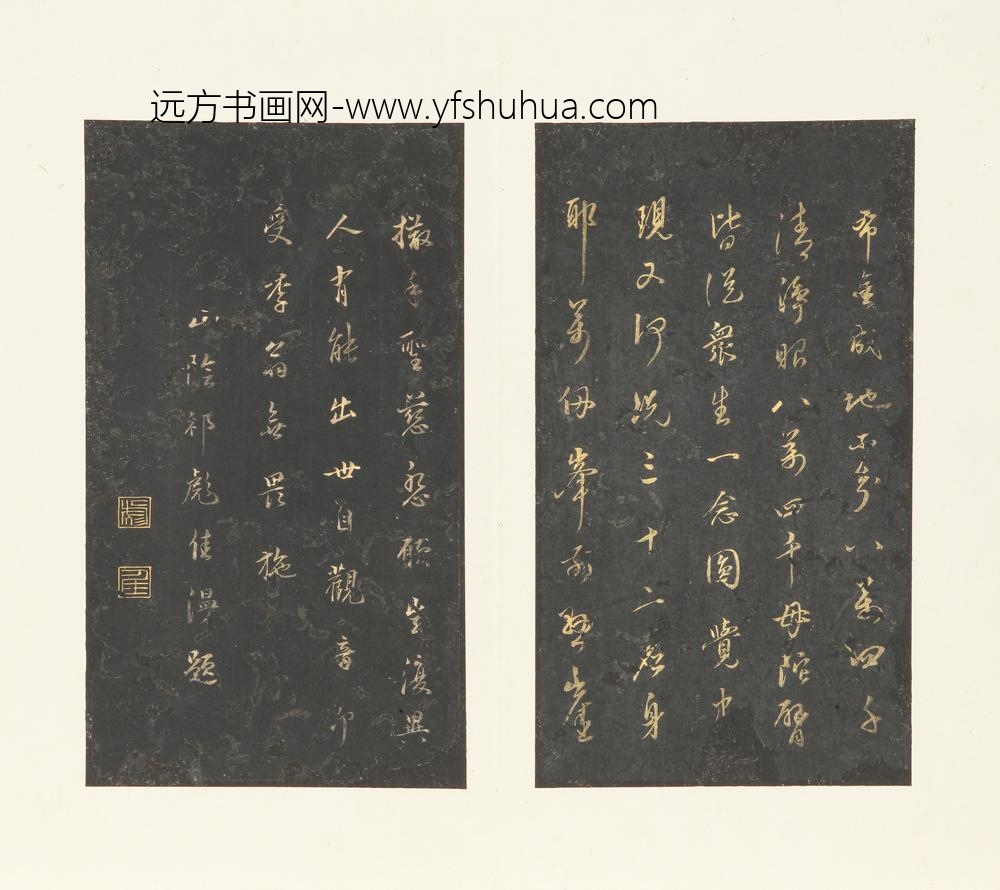 远方书画网-www.yfshuhua.com
布金成地不分八萬四千
清淨昭八萬四千母陀臂
皆從衆生一念圓覺中
現又何況三十二應身
耶萬仞峯前懸崖
撒手聖慈悲願豈復異
人有能出世自觀音印
受季翁無畏施
山陰祁彪佳漫題